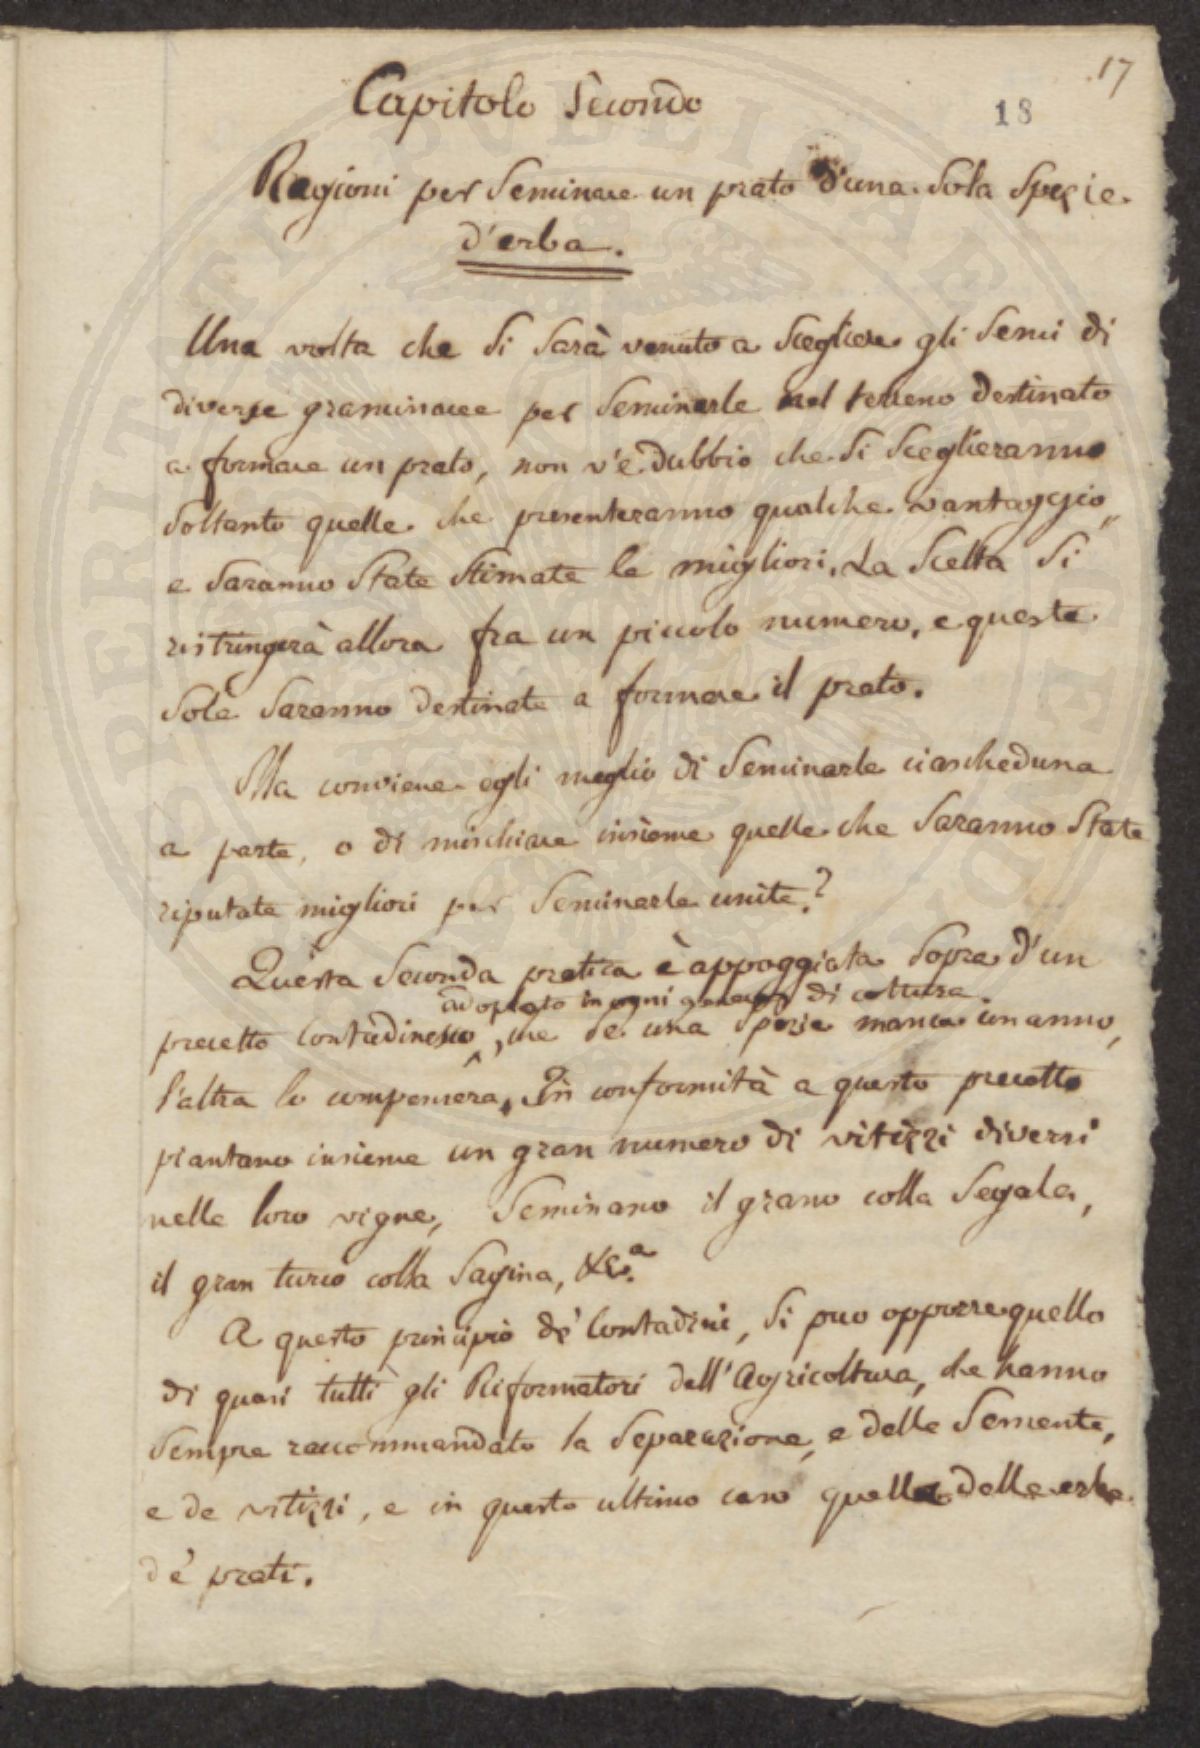 17
18
Capitolo Secondo
Ragioni per Seminare un prato d'una Sola Spezie
d'erba.
Una volta che Si Sarà venuto a Scegliere gli Semi di
diverse graminacee per Seminarle nel terreno destinato
a formare un prato, non v'è dubbio che Si Sceglieranno
Soltanto quelle che presenteranno qualche vantaggio,
e Saranno State Stimate le migliori. La Scelta Si
ristringerà allora fra un piccolo numero, e queste
Sole Saranno destinate a formare il prato.
Ma conviene egli meglio di Seminarle ciascheduna
a parte, o di mischiare insieme quelle che Saranno State
riputate migliori per Seminarle unite?
Questa Seconda pratica è appoggiata Sopra d'un
adoptato in ogni genere di coltura
precetto contadinesco, che se una Spezie manca un anno,
l'altra lo compensera. In conformità a questo precetto
piantano insieme un gran numero di vitizzi diversi
nelle loro vigne, Seminano il grano colla Segala,
il gran turco colla Sagina, &c.a
A questo principio de' Contadini, Si puo opporre quello
di quasi tutti gli Riformatori dell'Agricoltura, che hanno
Sempre raccommandato la Separazione, e delle Semente,
e de vitizzi, e in questo ultimo caso quella delle erbe
de' prati.